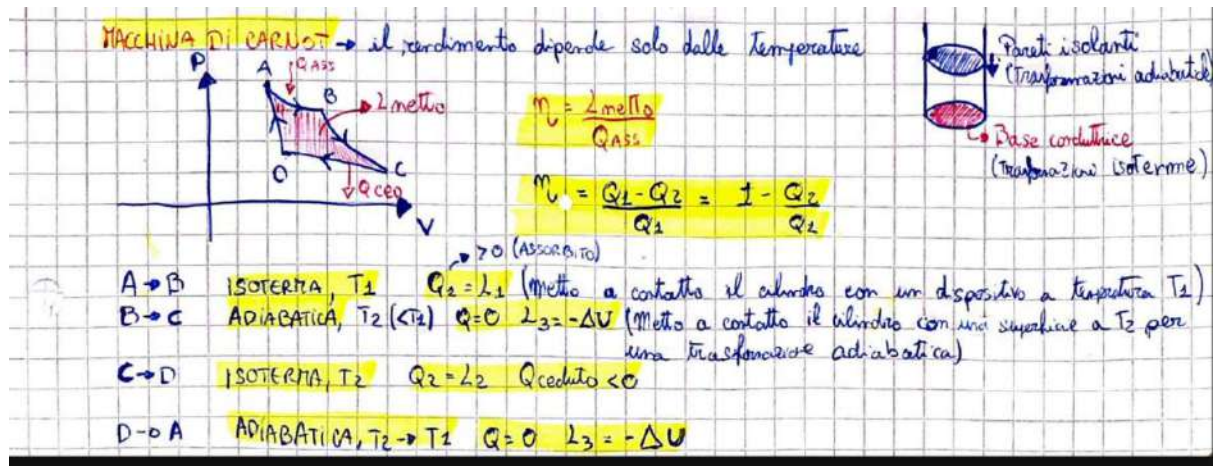 MACCHINA DI CARNOT → il rendimento dipende solo dalle temperature
P
A
Q ASS
B
L netto
D
C
Q ced
V
η = L netto / Q ASS
η = Q1 - Q2 / Q1 = 1 - Q2 / Q1
Pareti isolanti
(Trasformazioni adiabatiche)
Base conduttrice
(Trasformazioni isoterme)
>0 (ASSORBITO)
A→B ISOTERMA, T1 Q1 = L1 (Metto a contatto il cilindro con un dispositivo a temperatura T1)
B→C ADIABATICA, T2 (<T1) Q=0 L3 = -ΔU (Metto a contatto il cilindro con una superficie a T2 per
una trasformazione adiabatica)
C→D ISOTERMA, T2 Q2 = L2 Q ceduto <0
D→A ADIABATICA, T2→T1 Q=0 L3 = -ΔU